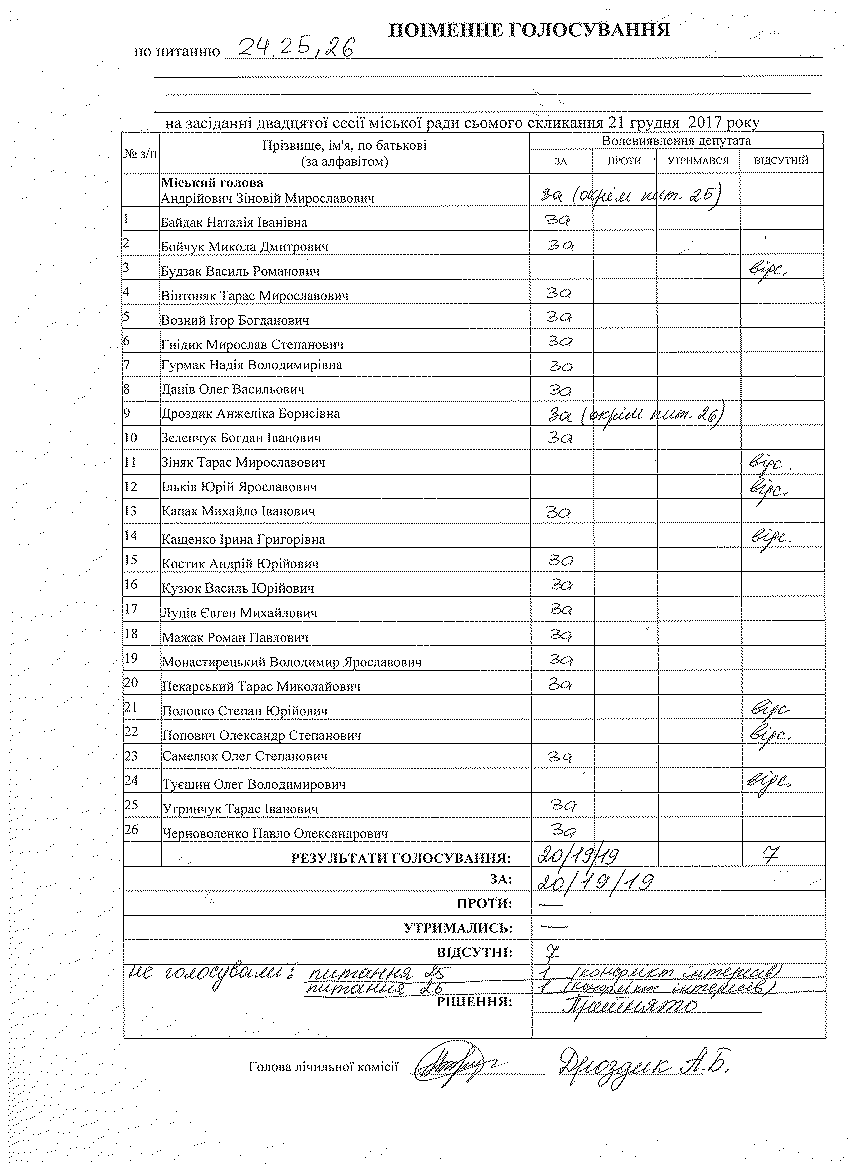 ПОІМЕННЕ ГОЛОСУВАННЯ
по питанню 24,25,26
на засіданні двадцятої сесії міської ради сьомого скликання 21 грудня 2017 року
№ з/п Прізвище, ім'я, по батькові (за алфавітом) Волевиявлення депутата
ЗА ПРОТИ УТРИМАВСЯ ВІДСУТНІЙ
Міський голова
Андрійович Зіновій Мирославович за (окрім пит. 25)
1 Байдак Наталія Іванівна за
2 Бойчук Микола Дмитрович за
3 Будзак Василь Романович відс.
4 Вінтоняк Тарас Мирославович за
5 Возний Ігор Богданович за
6 Гнідик Мирослав Степанович за
7 Гурмак Надія Володимирівна за
8 Данів Олег Васильович за
9 Дроздик Анжеліка Борисівна за (окрім пит. 26)
10 Зеленчук Богдан Іванович за
11 Зіняк Тарас Мирославович відс.
12 Ільків Юрій Ярославович відс.
13 Капак Михайло Іванович за
14 Кащенко Ірина Григорівна відс.
15 Костик Андрій Юрійович за
16 Кузюк Василь Юрійович за
17 Луців Євген Михайлович за
18 Мажак Роман Павлович за
19 Монастирецький Володимир Ярославович за
20 Пекарський Тарас Миколайович за
21 Половко Степан Юрійович відс
22 Попович Олександр Степанович відс.
23 Самелюк Олег Степанович за
24 Туєшин Олег Володимирович відс.
25 Угринчук Тарас Іванович за
26 Черноволенко Павло Олександрович за
РЕЗУЛЬТАТИ ГОЛОСУВАННЯ: 20/19/19 7
ЗА: 20/19/19
ПРОТИ: —
УТРИМАЛИСЬ: —
ВІДСУТНІ: 7
не голосували: питання 25 1 (конфлікт інтересів)
питання 26 1 (конфлікт інтересів)
РІШЕННЯ: Прийнято
Голова лічильної комісії Дроздик А.Б.